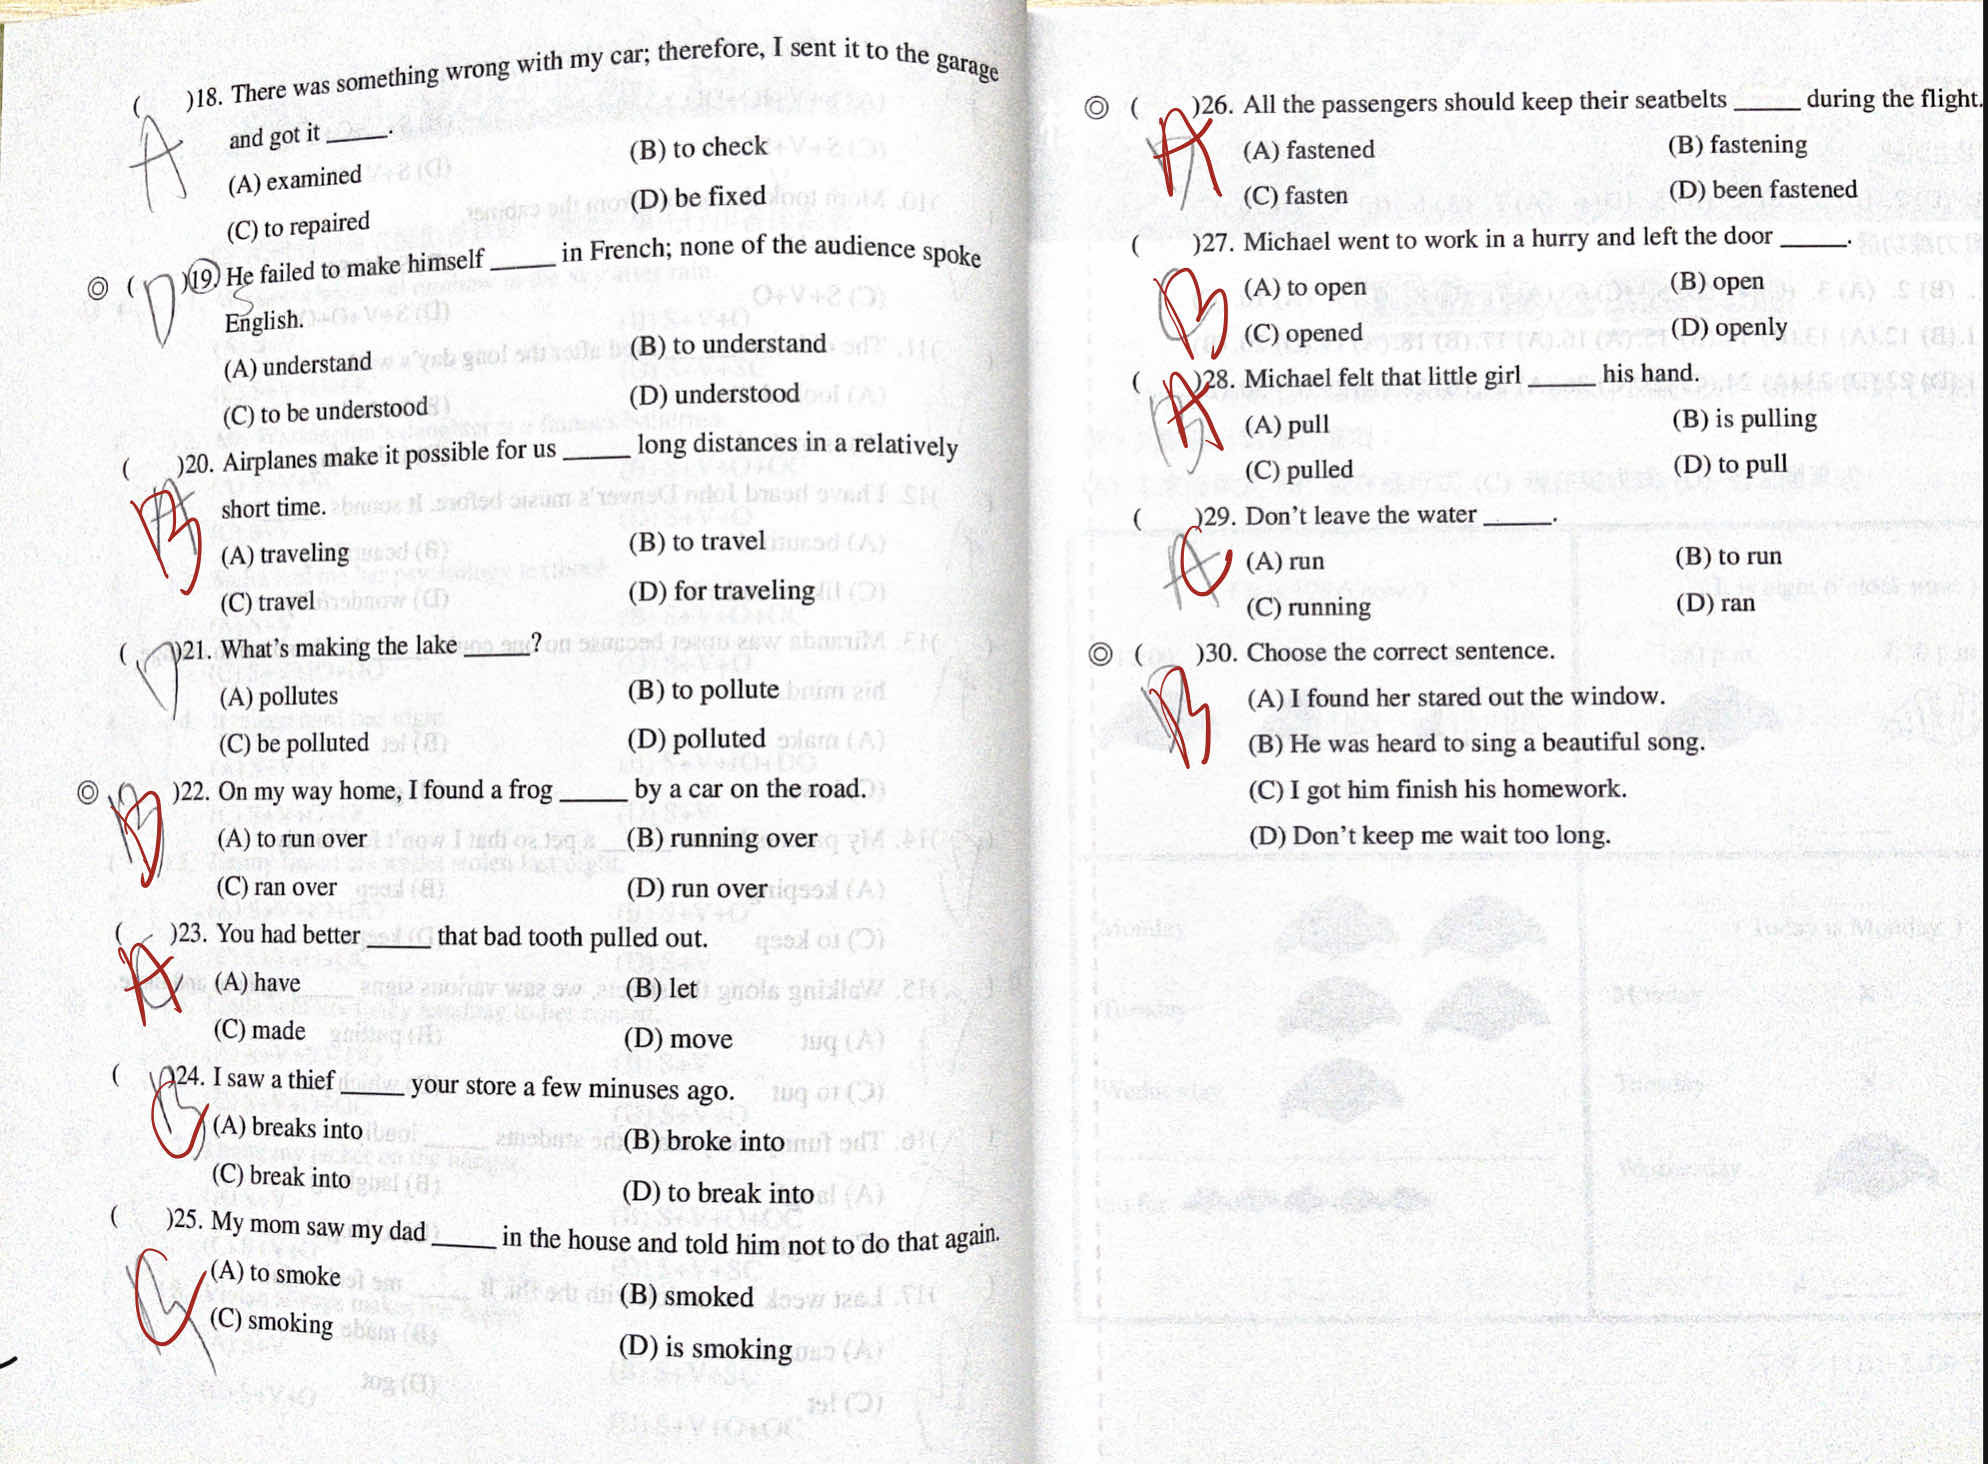 ( )18. There was something wrong with my car; therefore, I sent it to the garage
and got it _____.
(A) examined (B) to check
(C) to repaired (D) be fixed
A
◎ ( )19. He failed to make himself _____ in French; none of the audience spoke
English.
(A) understand (B) to understand
(C) to be understood (D) understood
D
( )20. Airplanes make it possible for us _____ long distances in a relatively
short time.
(A) traveling (B) to travel
(C) travel (D) for traveling
B
( )21. What's making the lake _____?
(A) pollutes (B) to pollute
(C) be polluted (D) polluted
D
◎ ( )22. On my way home, I found a frog _____ by a car on the road.
(A) to run over (B) running over
(C) ran over (D) run over
D
( )23. You had better _____ that bad tooth pulled out.
(A) have (B) let
(C) made (D) move
A
( )24. I saw a thief _____ your store a few minuses ago.
(A) breaks into (B) broke into
(C) break into (D) to break into
C
( )25. My mom saw my dad _____ in the house and told him not to do that again.
(A) to smoke (B) smoked
(C) smoking (D) is smoking
C
◎ ( )26. All the passengers should keep their seatbelts _____ during the flight.
(A) fastened (B) fastening
(C) fasten (D) been fastened
A
( )27. Michael went to work in a hurry and left the door _____.
(A) to open (B) open
(C) opened (D) openly
B
( )28. Michael felt that little girl _____ his hand.
(A) pull (B) is pulling
(C) pulled (D) to pull
A
( )29. Don't leave the water _____.
(A) run (B) to run
(C) running (D) ran
C
◎ ( )30. Choose the correct sentence.
(A) I found her stared out the window.
(B) He was heard to sing a beautiful song.
(C) I got him finish his homework.
(D) Don't keep me wait too long.
B